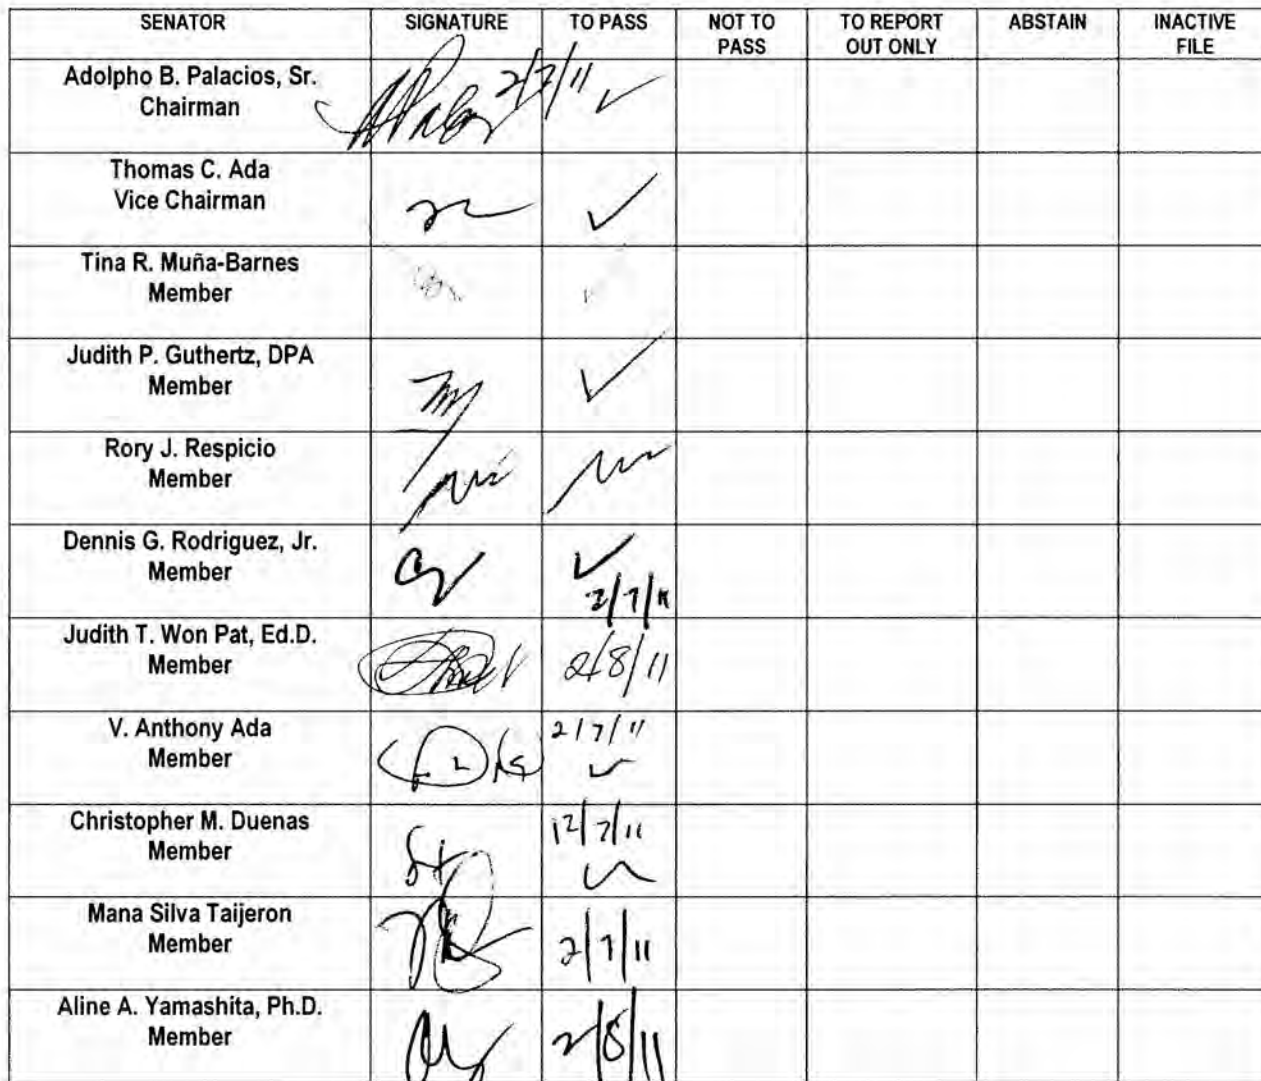 SENATOR SIGNATURE TO PASS NOT TO PASS TO REPORT OUT ONLY ABSTAIN INACTIVE FILE
Adolpho B. Palacios, Sr.
Chairman
2/7/11 ✓
Thomas C. Ada
Vice Chairman
✓
Tina R. Muña-Barnes
Member
Judith P. Guthertz, DPA
Member
✓
Rory J. Respicio
Member
Dennis G. Rodriguez, Jr.
Member
✓
2/7/11
Judith T. Won Pat, Ed.D.
Member
2/8/11
V. Anthony Ada
Member
2/7/11
✓
Christopher M. Duenas
Member
12/7/11
Mana Silva Taijeron
Member
2/7/11
Aline A. Yamashita, Ph.D.
Member
2/8/11